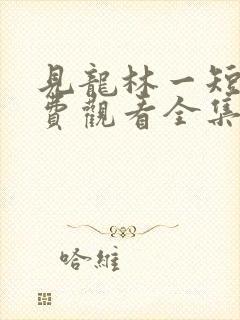 見龍林一短
費觀看全集
哈維